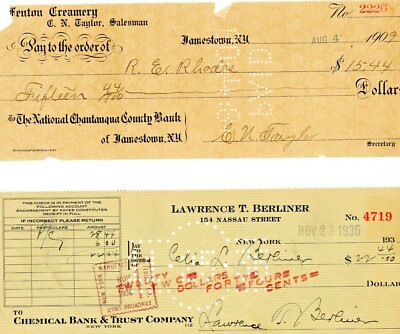 Fenton Creamery
C. N. Taylor, Salesman
No. 2226
Jamestown, N.Y. AUG 4 1909
Pay to the order of R. E. Rhodes $15.44
Fifteen 44/100 Dollars
PAID
To The National Chautauqua County Bank
of Jamestown, N.Y.
C. N. Taylor
Secretary
THIS CHECK IS IN PAYMENT OF THE
FOLLOWING ACCOUNT.
ENDORSEMENT BY PAYEE CONSTITUTES
RECEIPT IN FULL
IF INCORRECT PLEASE RETURN
DATE PARTICULARS AMOUNT
LAWRENCE T. BERLINER
154 NASSAU STREET
No. 4719
NEW YORK NOV 23 1936 193
PAY TO
THE ORDER
OF
Celia L. Berliner $22.44
DOLLARS
TWENTY TWO DOLLARS FORTY FOUR CENTS
TO
CHEMICAL BANK & TRUST COMPANY
NEW YORK
Lawrence T. Berliner